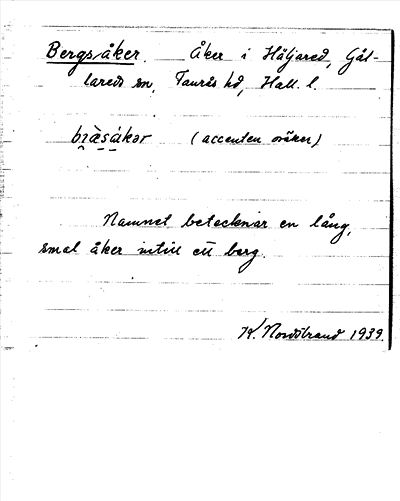 Bergsåker. Åker i Häljared, Gäl-
lareds sn, Faurås hd, Hall. l.
bræsåkər (accenten osäker)
Namnet betecknar en lång,
smal åker intill ett berg.
K. Nordstrand 1939.